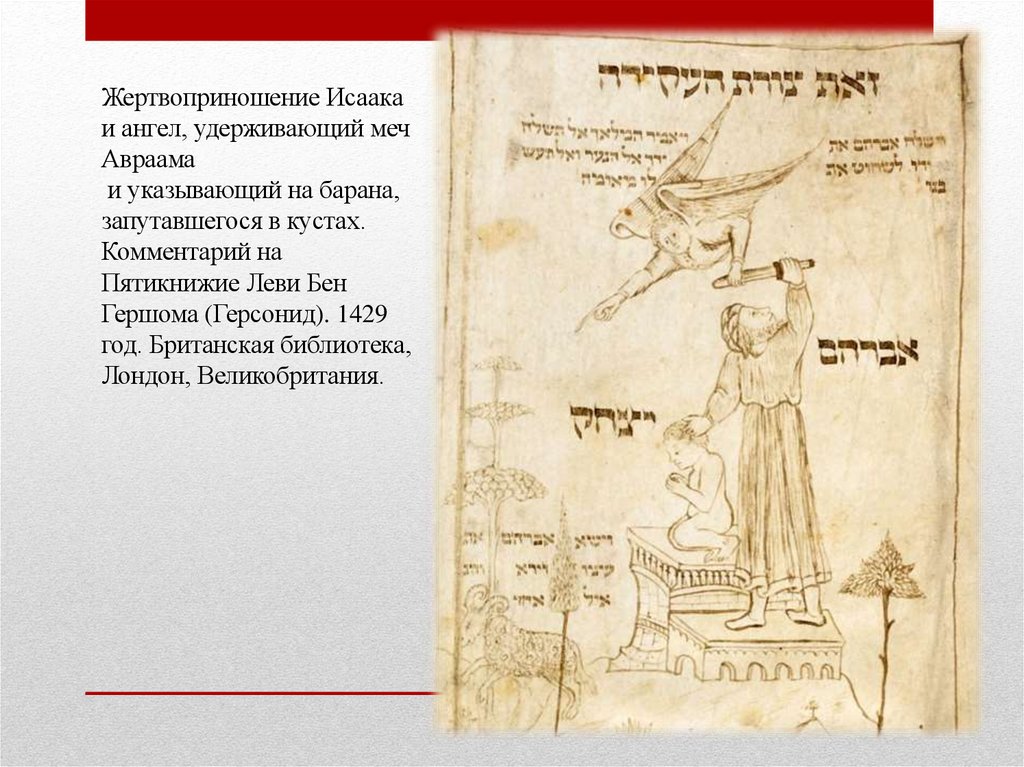 Жертвоприношение Исаака
и ангел, удерживающий меч
Авраама
и указывающий на барана,
запутавшегося в кустах.
Комментарий на
Пятикнижие Леви Бен
Гершома (Герсонид). 1429
год. Британская библиотека,
Лондон, Великобритания.
זאת צורת העקידה
וישלח אברהם את
ידו לשחוט את
בנו
ויאמר המלאך אל תשלח
ידך אל הנער ואל תעש
לו מאומה
אברהם
יצחק
וישא אברהם את
עיניו וירא
איל אחר